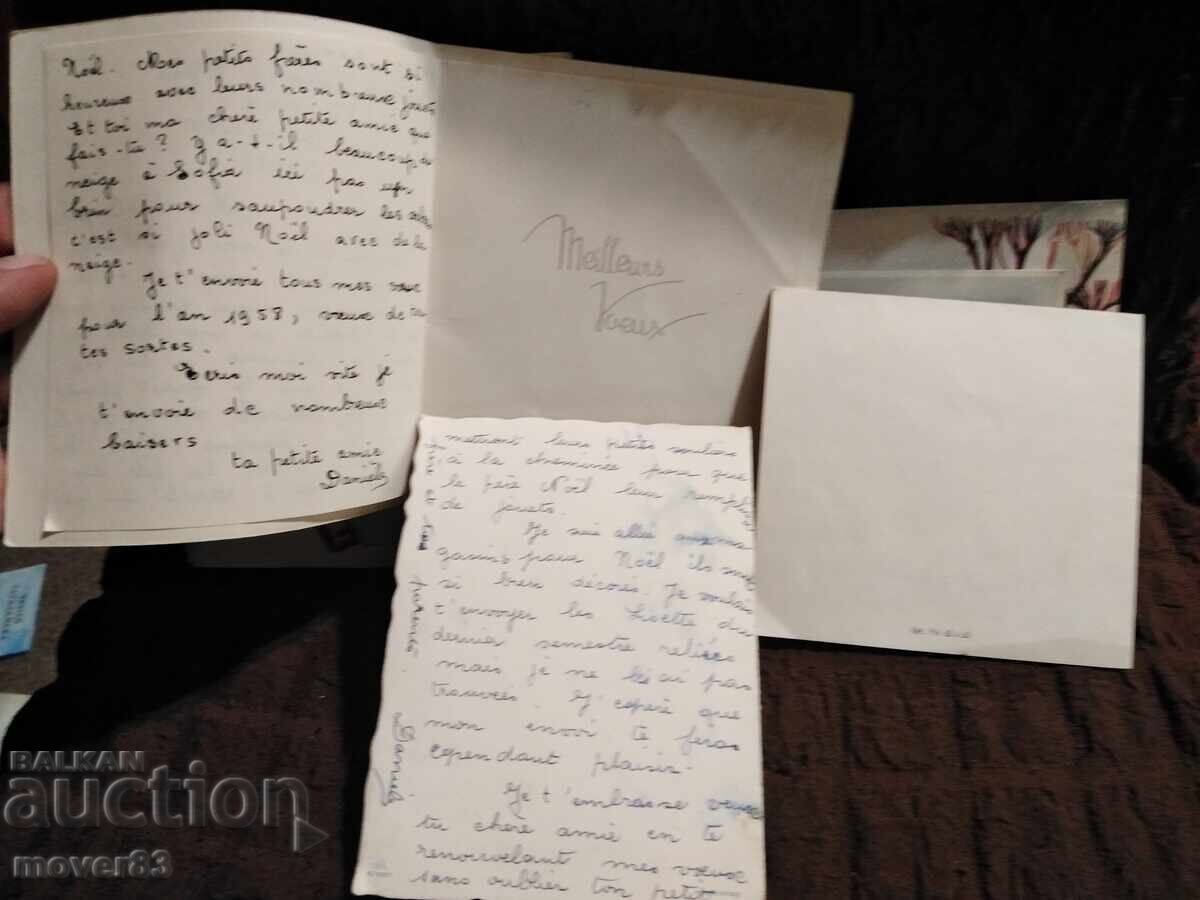 Noël. Mes petits frères sont si
heureux avec leurs nombreux jouets
Et toi ma chère petite amie que
fais-tu? Y a-t-il beaucoup de
neige à Sofia ici pas un
brin pour saupoudrer les
c'est si joli Noël avec de la
neige.
Je t'envoie tous mes vœux
pour l'an 1958, vœux de tou
tes sortes.
Ecris moi vite je
t'envoie de nombreux
baisers
ta petite amie
Danièle
Meilleurs
Vœux
mettront leurs petits souliers
à la cheminée pour que
le père Noël leur remplisse
de jouets.
Je suis allée aux ma
gasins pour Noël ils sont
si bien décorés. Je voulais
t'envoyer les Lisette du
dernier semestre reliées
mais je ne les ai pas
trouvées. J'espère que
mon envoi te feras
cependant plaisir.
Je t'embrasse veux
tu chère amie en te
renouvelant mes vœux
sans oublier ton petit
frère
et tes parents.
Danièle
BALKAN
auction
mover83